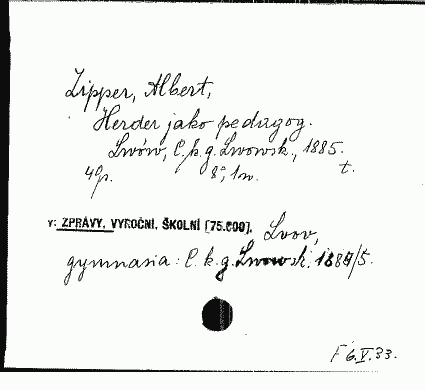 Zipper, Albert,
Herder jako pedagog.
Lwów, C. k. g. Lwowsk., 1885.
49 p. 8°, 1 w. t.
v: ZPRÁVY, VÝROČNÍ, ŠKOLNÍ [75.600]. Lvov,
gymnasia: C. k. g. Lwowsk. 1884/5.
F 6.V.33.